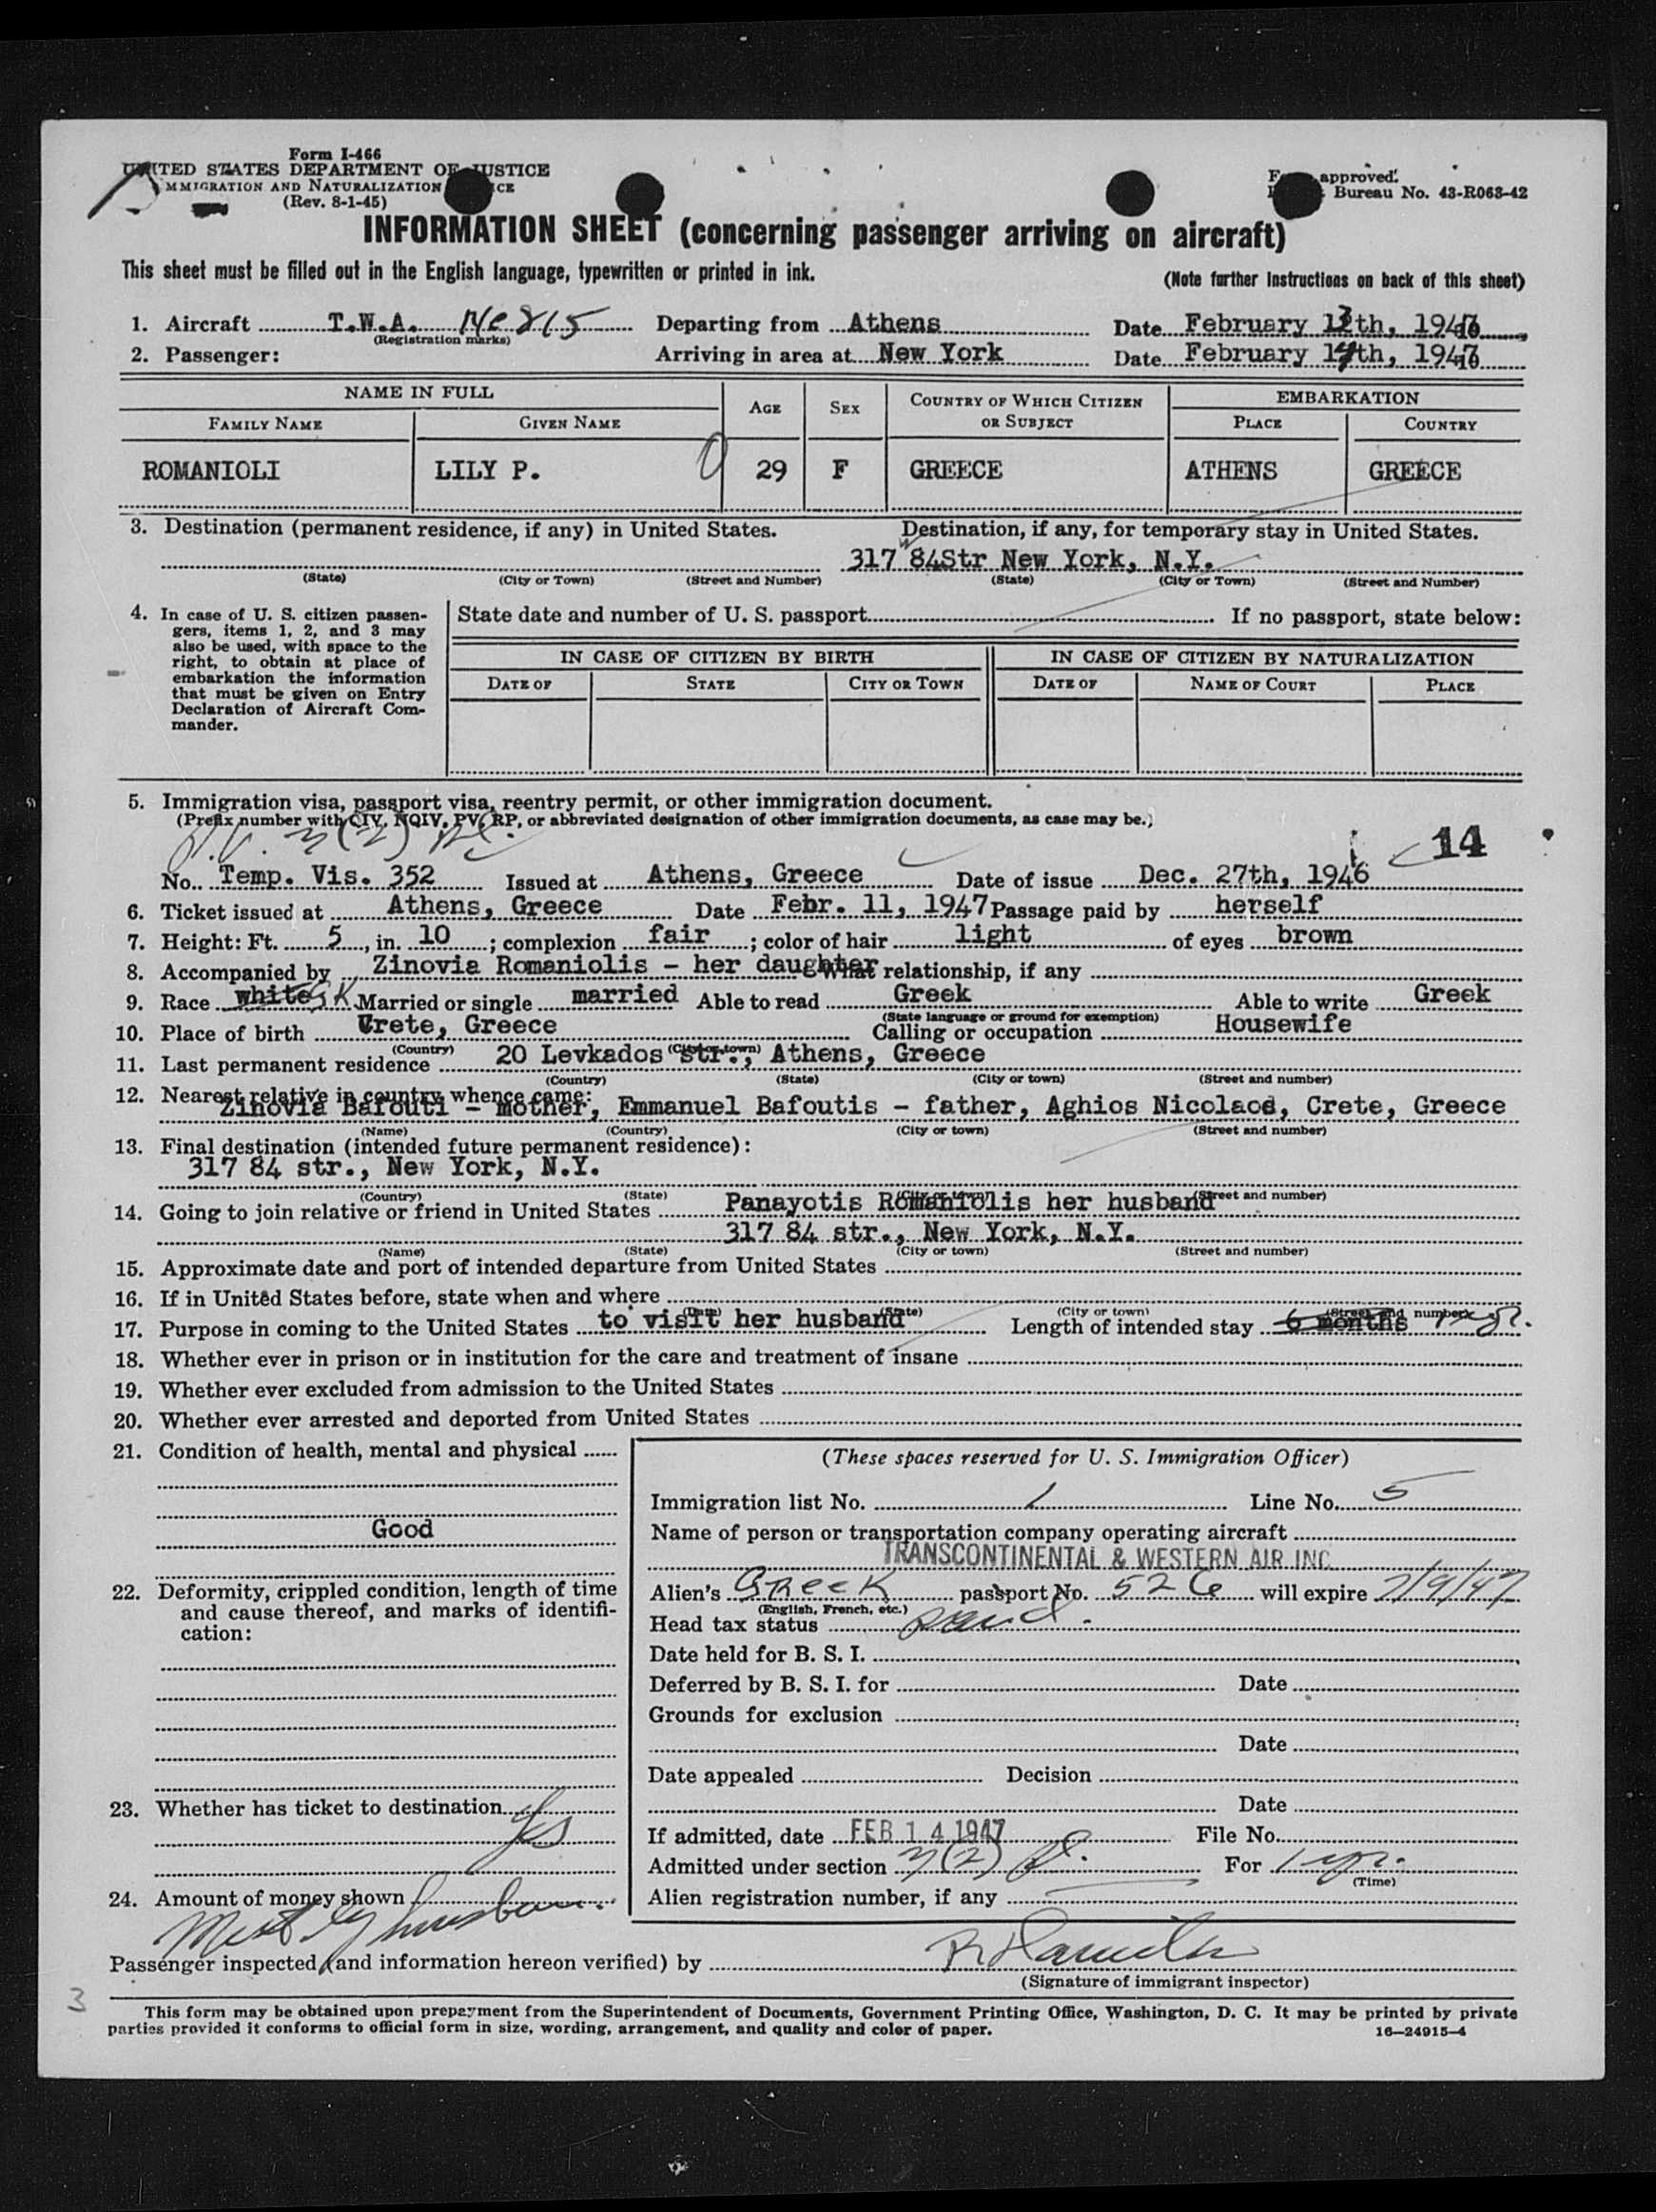 Form I-466
UNITED STATES DEPARTMENT OF JUSTICE
IMMIGRATION AND NATURALIZATION
(Rev. 8-1-45)
approved.
Bureau No. 43-R063-42
INFORMATION SHEET (concerning passenger arriving on aircraft)
This sheet must be filled out in the English language, typewritten or printed in ink.
(Note further instructions on back of this sheet)
1. Aircraft T.W.A. Departing from Athens Date February 13th, 1947
(Registration marks)
2. Passenger: Arriving in area at New York Date February 14th, 1947
NAME IN FULL AGE SEX COUNTRY OF WHICH CITIZEN OR SUBJECT EMBARKATION
FAMILY NAME GIVEN NAME PLACE COUNTRY
ROMANIOLI LILY P. 29 F GREECE ATHENS GREECE
3. Destination (permanent residence, if any) in United States. Destination, if any, for temporary stay in United States.
317 W 84Str New York, N.Y.
(State) (City or Town) (Street and Number) (State) (City or Town) (Street and Number)
4. In case of U. S. citizen passen-
gers, items 1, 2, and 3 may
also be used, with space to the
right, to obtain at place of
embarkation the information
that must be given on Entry
Declaration of Aircraft Com-
mander.
State date and number of U. S. passport If no passport, state below:
IN CASE OF CITIZEN BY BIRTH IN CASE OF CITIZEN BY NATURALIZATION
DATE OF STATE CITY OR TOWN DATE OF NAME OF COURT PLACE
5. Immigration visa, passport visa, reentry permit, or other immigration document.
(Prefix number with QIV, NQIV, PV, RP, or abbreviated designation of other immigration documents, as case may be.)
P.V. 3(2)
14
No. Temp. Vis. 352 Issued at Athens, Greece Date of issue Dec. 27th, 1946
6. Ticket issued at Athens, Greece Date Febr. 11, 1947 Passage paid by herself
7. Height: Ft. 5, in. 10; complexion fair; color of hair light of eyes brown
8. Accompanied by Zinovia Romaniolis - her daughter What relationship, if any
9. Race white GK Married or single married Able to read Greek Able to write Greek
(State language or ground for exemption)
10. Place of birth Crete, Greece Calling or occupation Housewife
(Country) (City or town)
11. Last permanent residence 20 Levkados str., Athens, Greece
(Country) (State) (City or town) (Street and number)
12. Nearest relative in country whence came:
Zinovia Bafouti - mother, Emmanuel Bafoutis - father, Aghios Nicolaos, Crete, Greece
(Name) (Country) (City or town) (Street and number)
13. Final destination (intended future permanent residence):
317 84 str., New York, N.Y.
(Country) (State) (City or town) (Street and number)
14. Going to join relative or friend in United States Panayotis Romaniolis her husband
317 84 str., New York, N.Y.
(Name) (State) (City or town) (Street and number)
15. Approximate date and port of intended departure from United States
16. If in United States before, state when and where
(Date) (State) (City or town) (Street and number)
17. Purpose in coming to the United States to visit her husband Length of intended stay 6 months
18. Whether ever in prison or in institution for the care and treatment of insane
19. Whether ever excluded from admission to the United States
20. Whether ever arrested and deported from United States
21. Condition of health, mental and physical
Good
22. Deformity, crippled condition, length of time
and cause thereof, and marks of identifi-
cation:
23. Whether has ticket to destination Yes
24. Amount of money shown
Met by husband
(These spaces reserved for U. S. Immigration Officer)
Immigration list No. 1 Line No. 5
Name of person or transportation company operating aircraft
TRANSCONTINENTAL & WESTERN AIR INC
Alien's Greek passport No. 526 will expire
(English, French, etc.)
Head tax status paid.
Date held for B. S. I.
Deferred by B. S. I. for Date
Grounds for exclusion
Date
Date appealed Decision
Date
If admitted, date FEB 14 1947 File No.
Admitted under section 3(2) For 1 yr.
(Time)
Alien registration number, if any
Passenger inspected (and information hereon verified) by
(Signature of immigrant inspector)
3
This form may be obtained upon prepayment from the Superintendent of Documents, Government Printing Office, Washington, D. C. It may be printed by private
parties provided it conforms to official form in size, wording, arrangement, and quality and color of paper. 16—24915-4